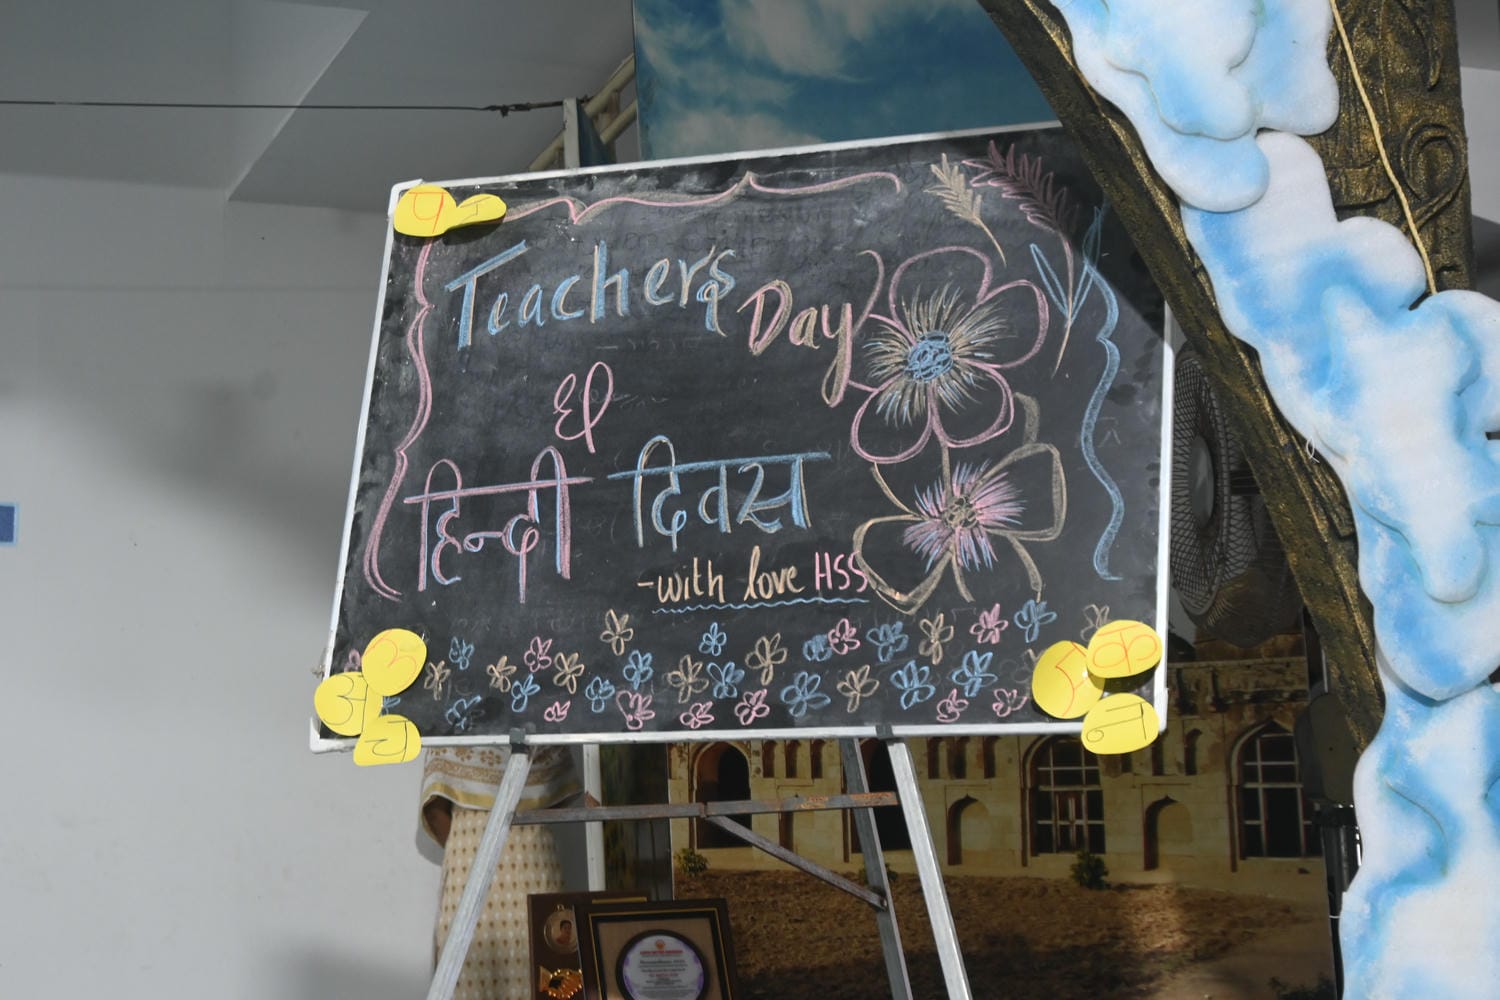 प
Teacher's Day
&
हिन्दी दिवस
-with love HSS
अ
क